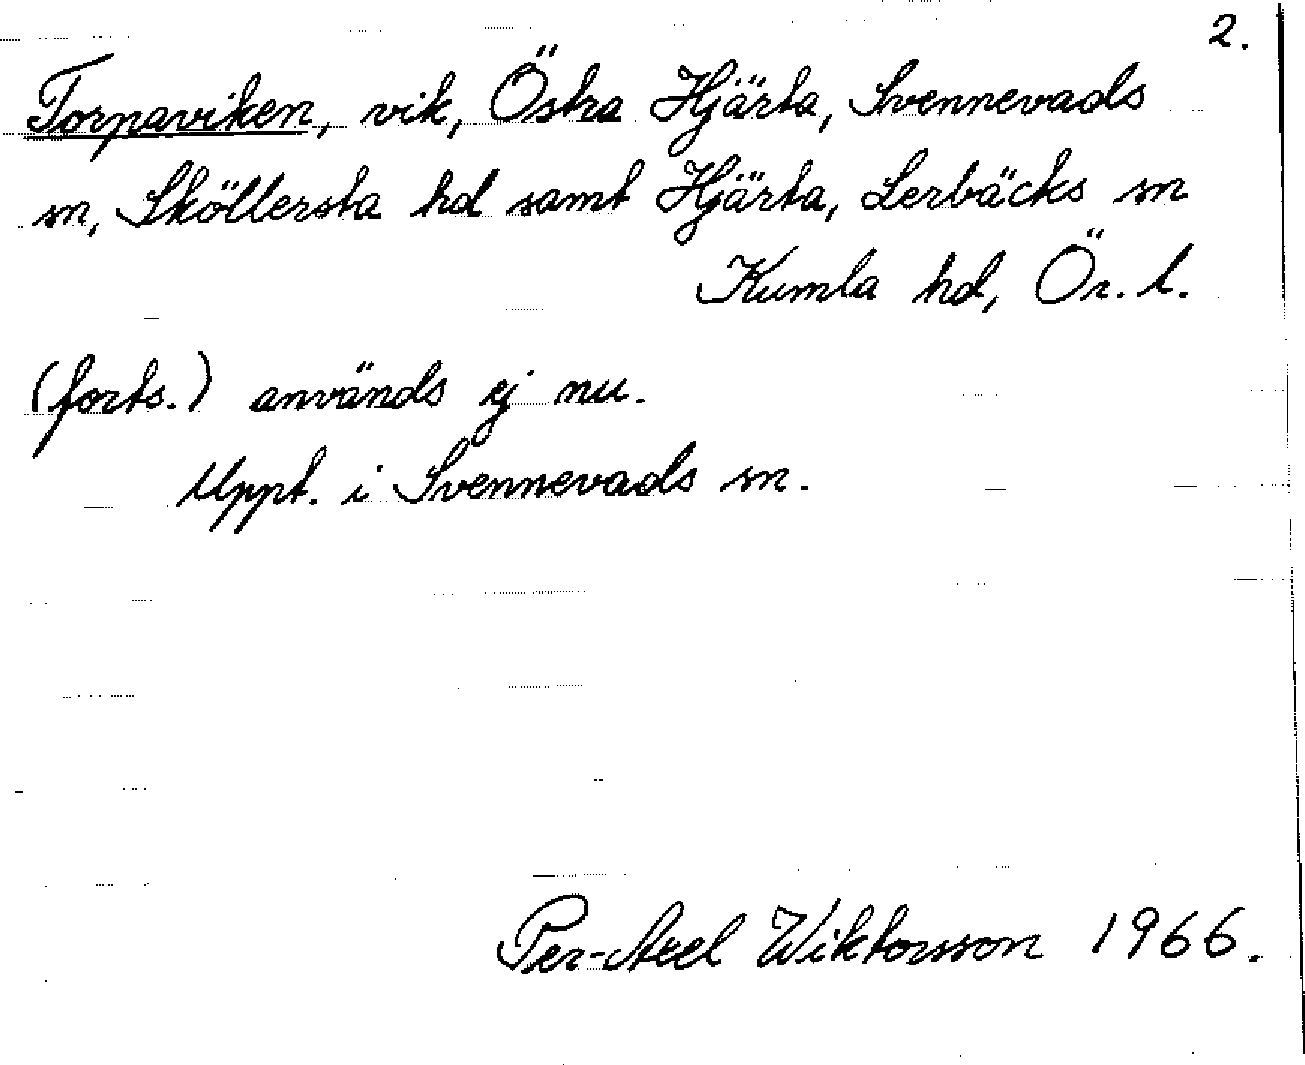 2.
Torpaviken, vik, Östra Hjärta, Svennevads
sn, Sköllersta hd samt Hjärta, Lerbäcks sn
Kumla hd, Ör. l.
(forts.) används ej nu.
Uppt. i Svennevads sn.
Per-Axel Wiktorsson 1966.